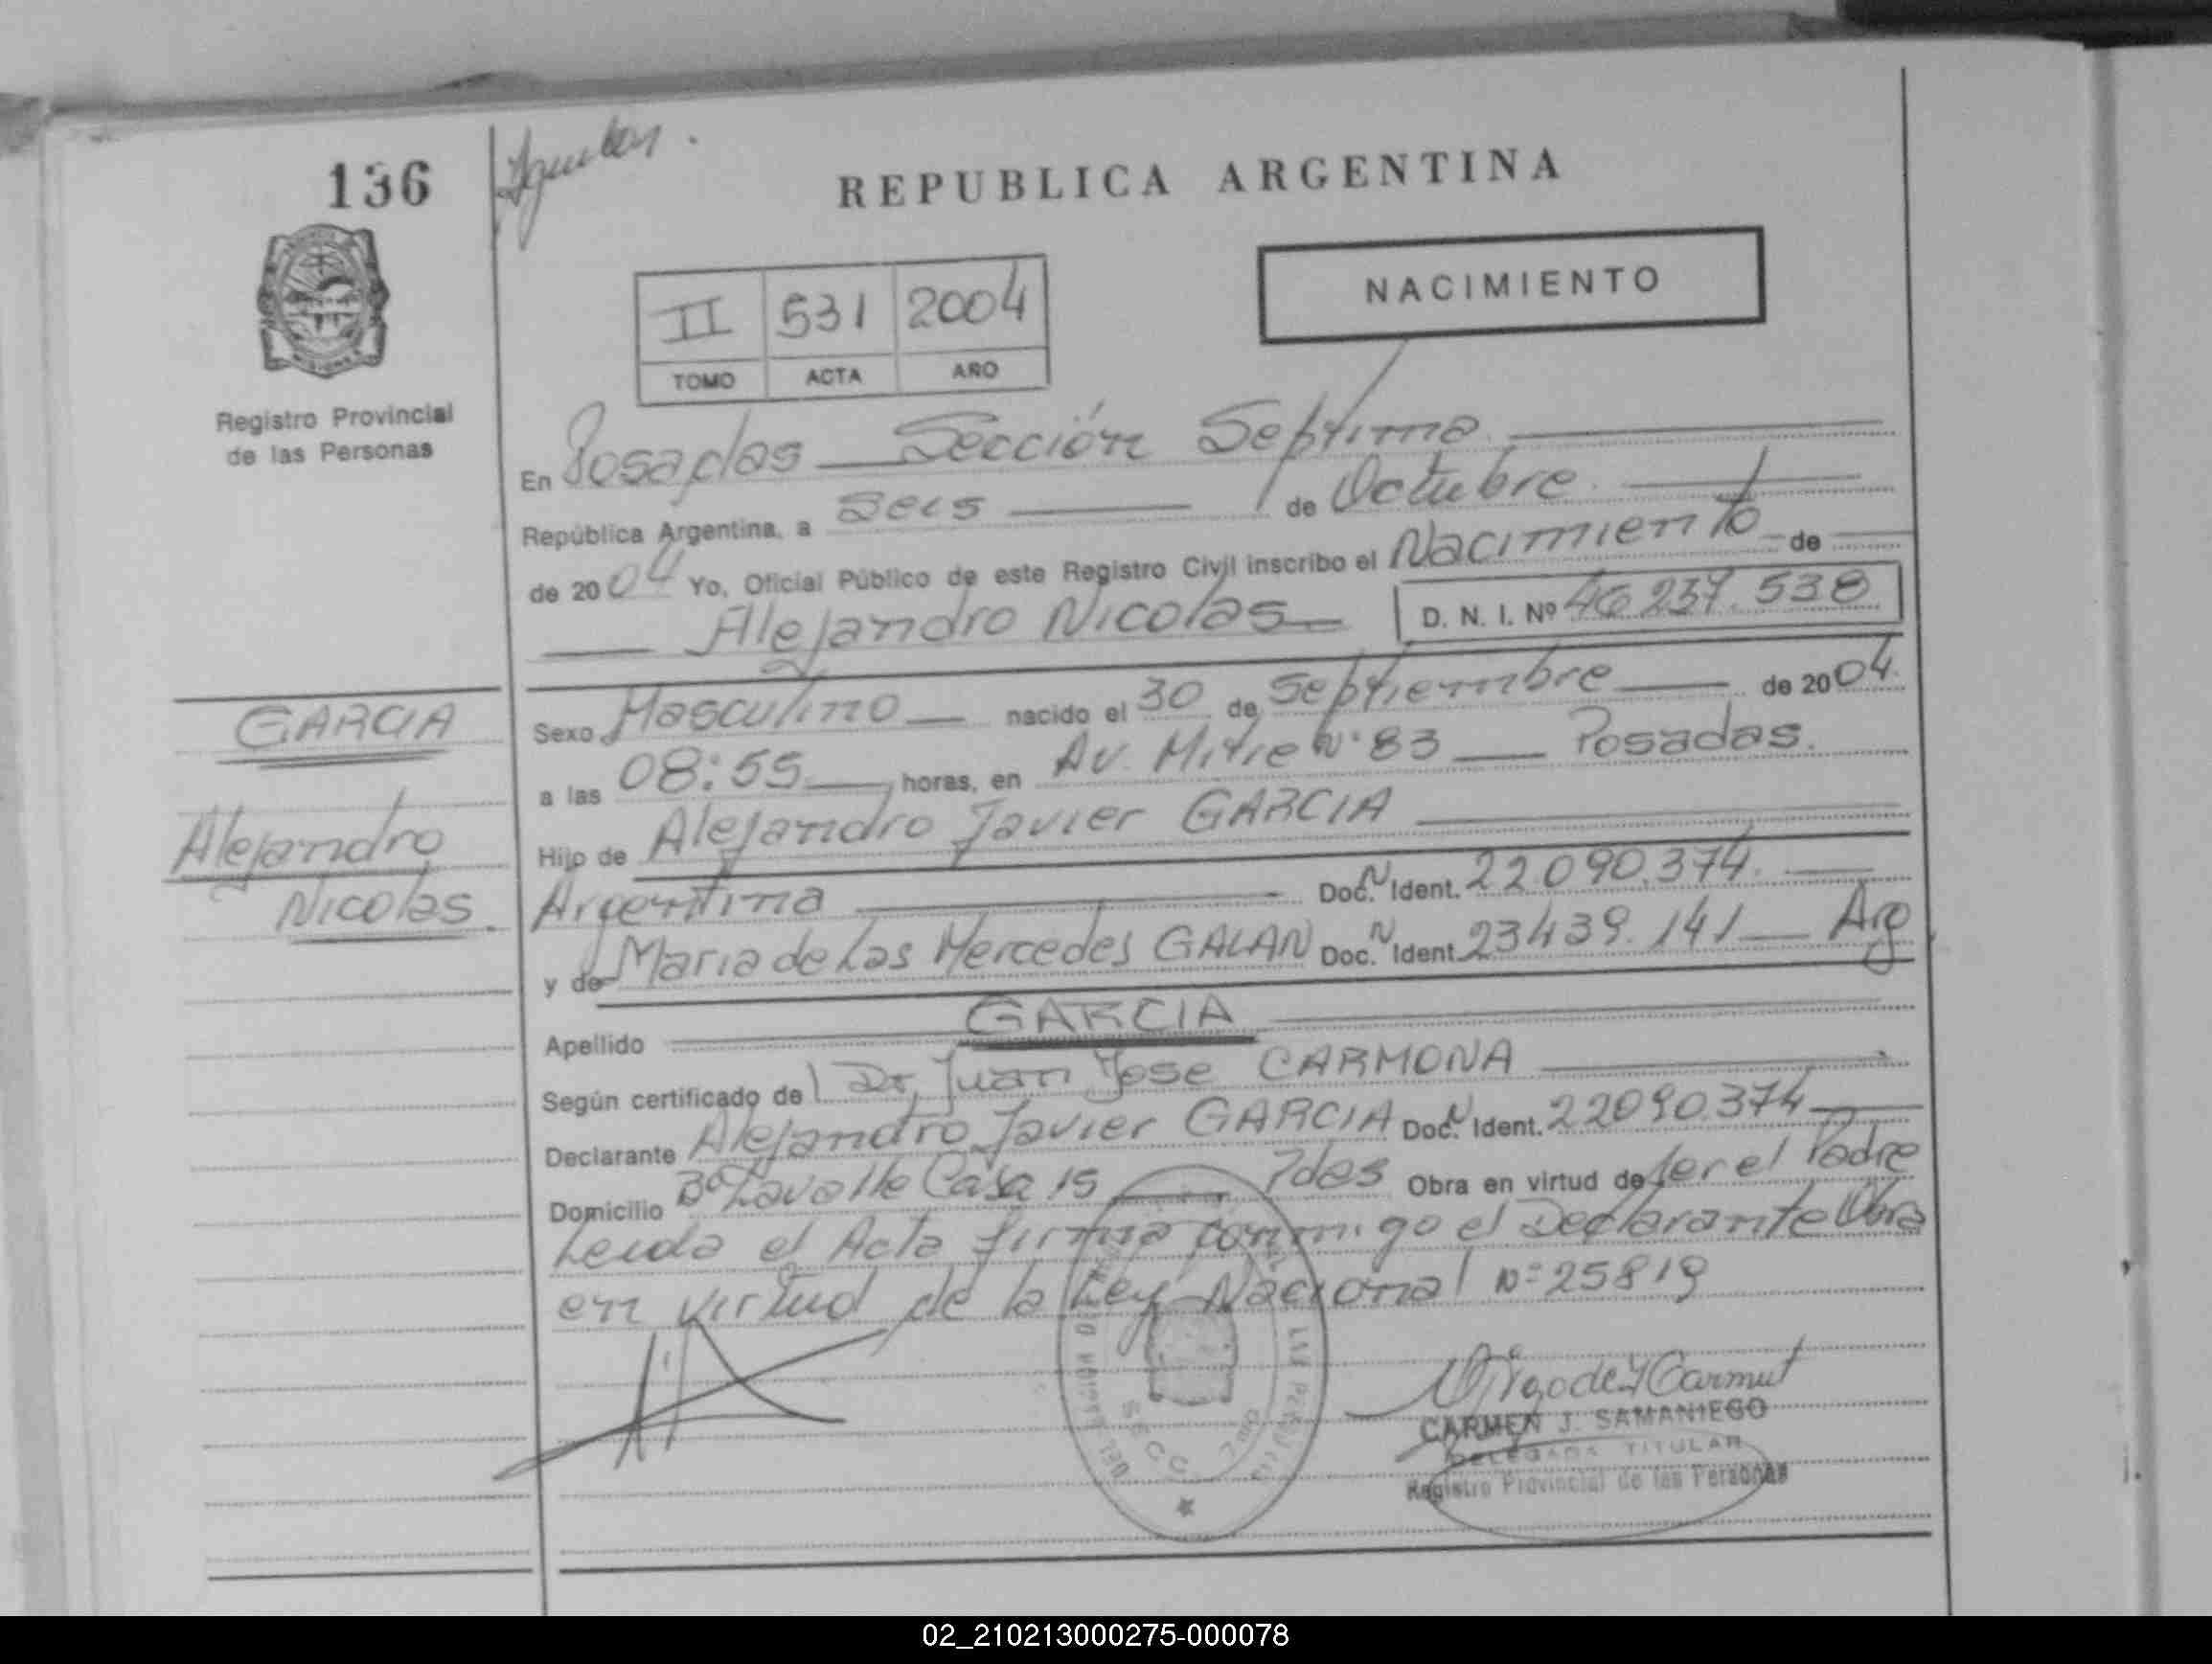 136
REPUBLICA ARGENTINA
NACIMIENTO
II 531 2004
TOMO ACTA AÑO
Registro Provincial
de las Personas
En Posadas Sección Septima
República Argentina, a Seis de Octubre
de 2004 Yo, Oficial Público de este Registro Civil inscribo el Nacimiento de
Alejandro Nicolas D. N. I. Nº 46 237. 538
GARCIA
Alejandro
Nicolas.
Sexo Masculino nacido el 30 de Septiembre de 2004.
a las 08:55 horas, en Av. Mitre Nº 83 Posadas.
Hijo de Alejandro Javier GARCIA
Argentina Doc. N Ident. 22.090.374.
y de Maria de Las Mercedes GALAN Doc. N Ident. 23439.141 Arg
Apellido GARCIA
Según certificado de Dr. Juan Jose CARMONA
Declarante Alejandro Javier GARCIA Doc. N Ident. 22090374
Domicilio Bº Lavalle Casa 15 Pdas Obra en virtud de ser el Padre
Leida el Acta firma conmigo el Declarante Obra
en virtud de la Ley Nacional Nº 25819
SECC
CARMEN J. SAMANIEGO
DELEGADA TITULAR
Registro Provincial de las Personas
02_210213000275-000078